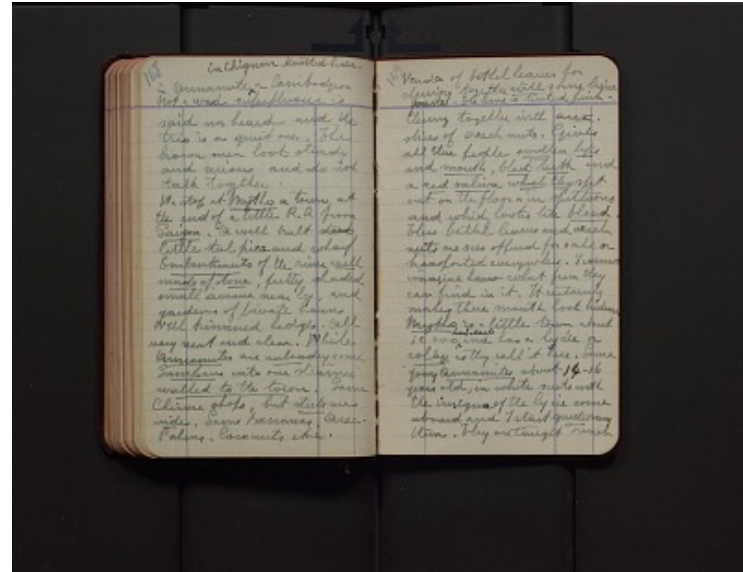 168
in Chignon Knotted hair.
in Annamite or Cambodgian
Not a word superfluous is
said nor heard and the
trip is a quiet one. The
brown men look steady
and serious and do not
talk together.
We stop at Mytho a town, at
the end of a little R.R. from
Saigon. A well built
little steel pier and wharf
Embankments of the river well
made of stone, pretty shaded
small avenue near by, and
gardens of private houses
well trimmed hedges. All
very neat and clean. While
Annamites are unloading some
Sampans into our steamer
walked to the town. Some
Chinese shops, but streets are
wide, Some bananas, Arec-
Palms. Coconuts etc.
169
of bethel leaves for
chewing together with some lime
The lime is tinted pink.
Chewing together with arec.
slices of arech nuts. Gives
all these people swollen lips
and mouth, black teeth and
a red saliva which they spit
out on the floor or in spittoons
and which looks like blood.
These bethel leaves and arech
nuts are offered for sale or
everywhere. I cannot
imagine however what fun they
can find in it. It certainly
makes their mouth look hideous
Mytho is a little town about
and has a Lycée or
college as they call it here. Some
young Annamites about 14-16
years old, in white suits with
the insigna of the lycée come
aboard and I start questioning
them. They are taught French